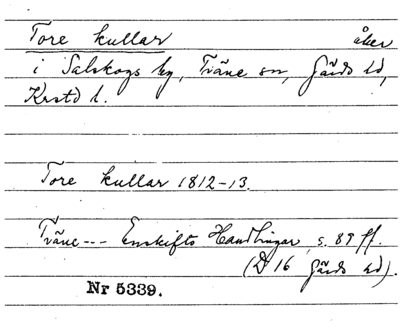 Tore kullar åker
i Salskogs by, Träne sn, Gärds hd,
Krstd l.
Tore kullar 1812-13.
Träne --- Enskifts Handlingar, s. 89 ff.
(D 16 Gärds hd).
Nr 5339.